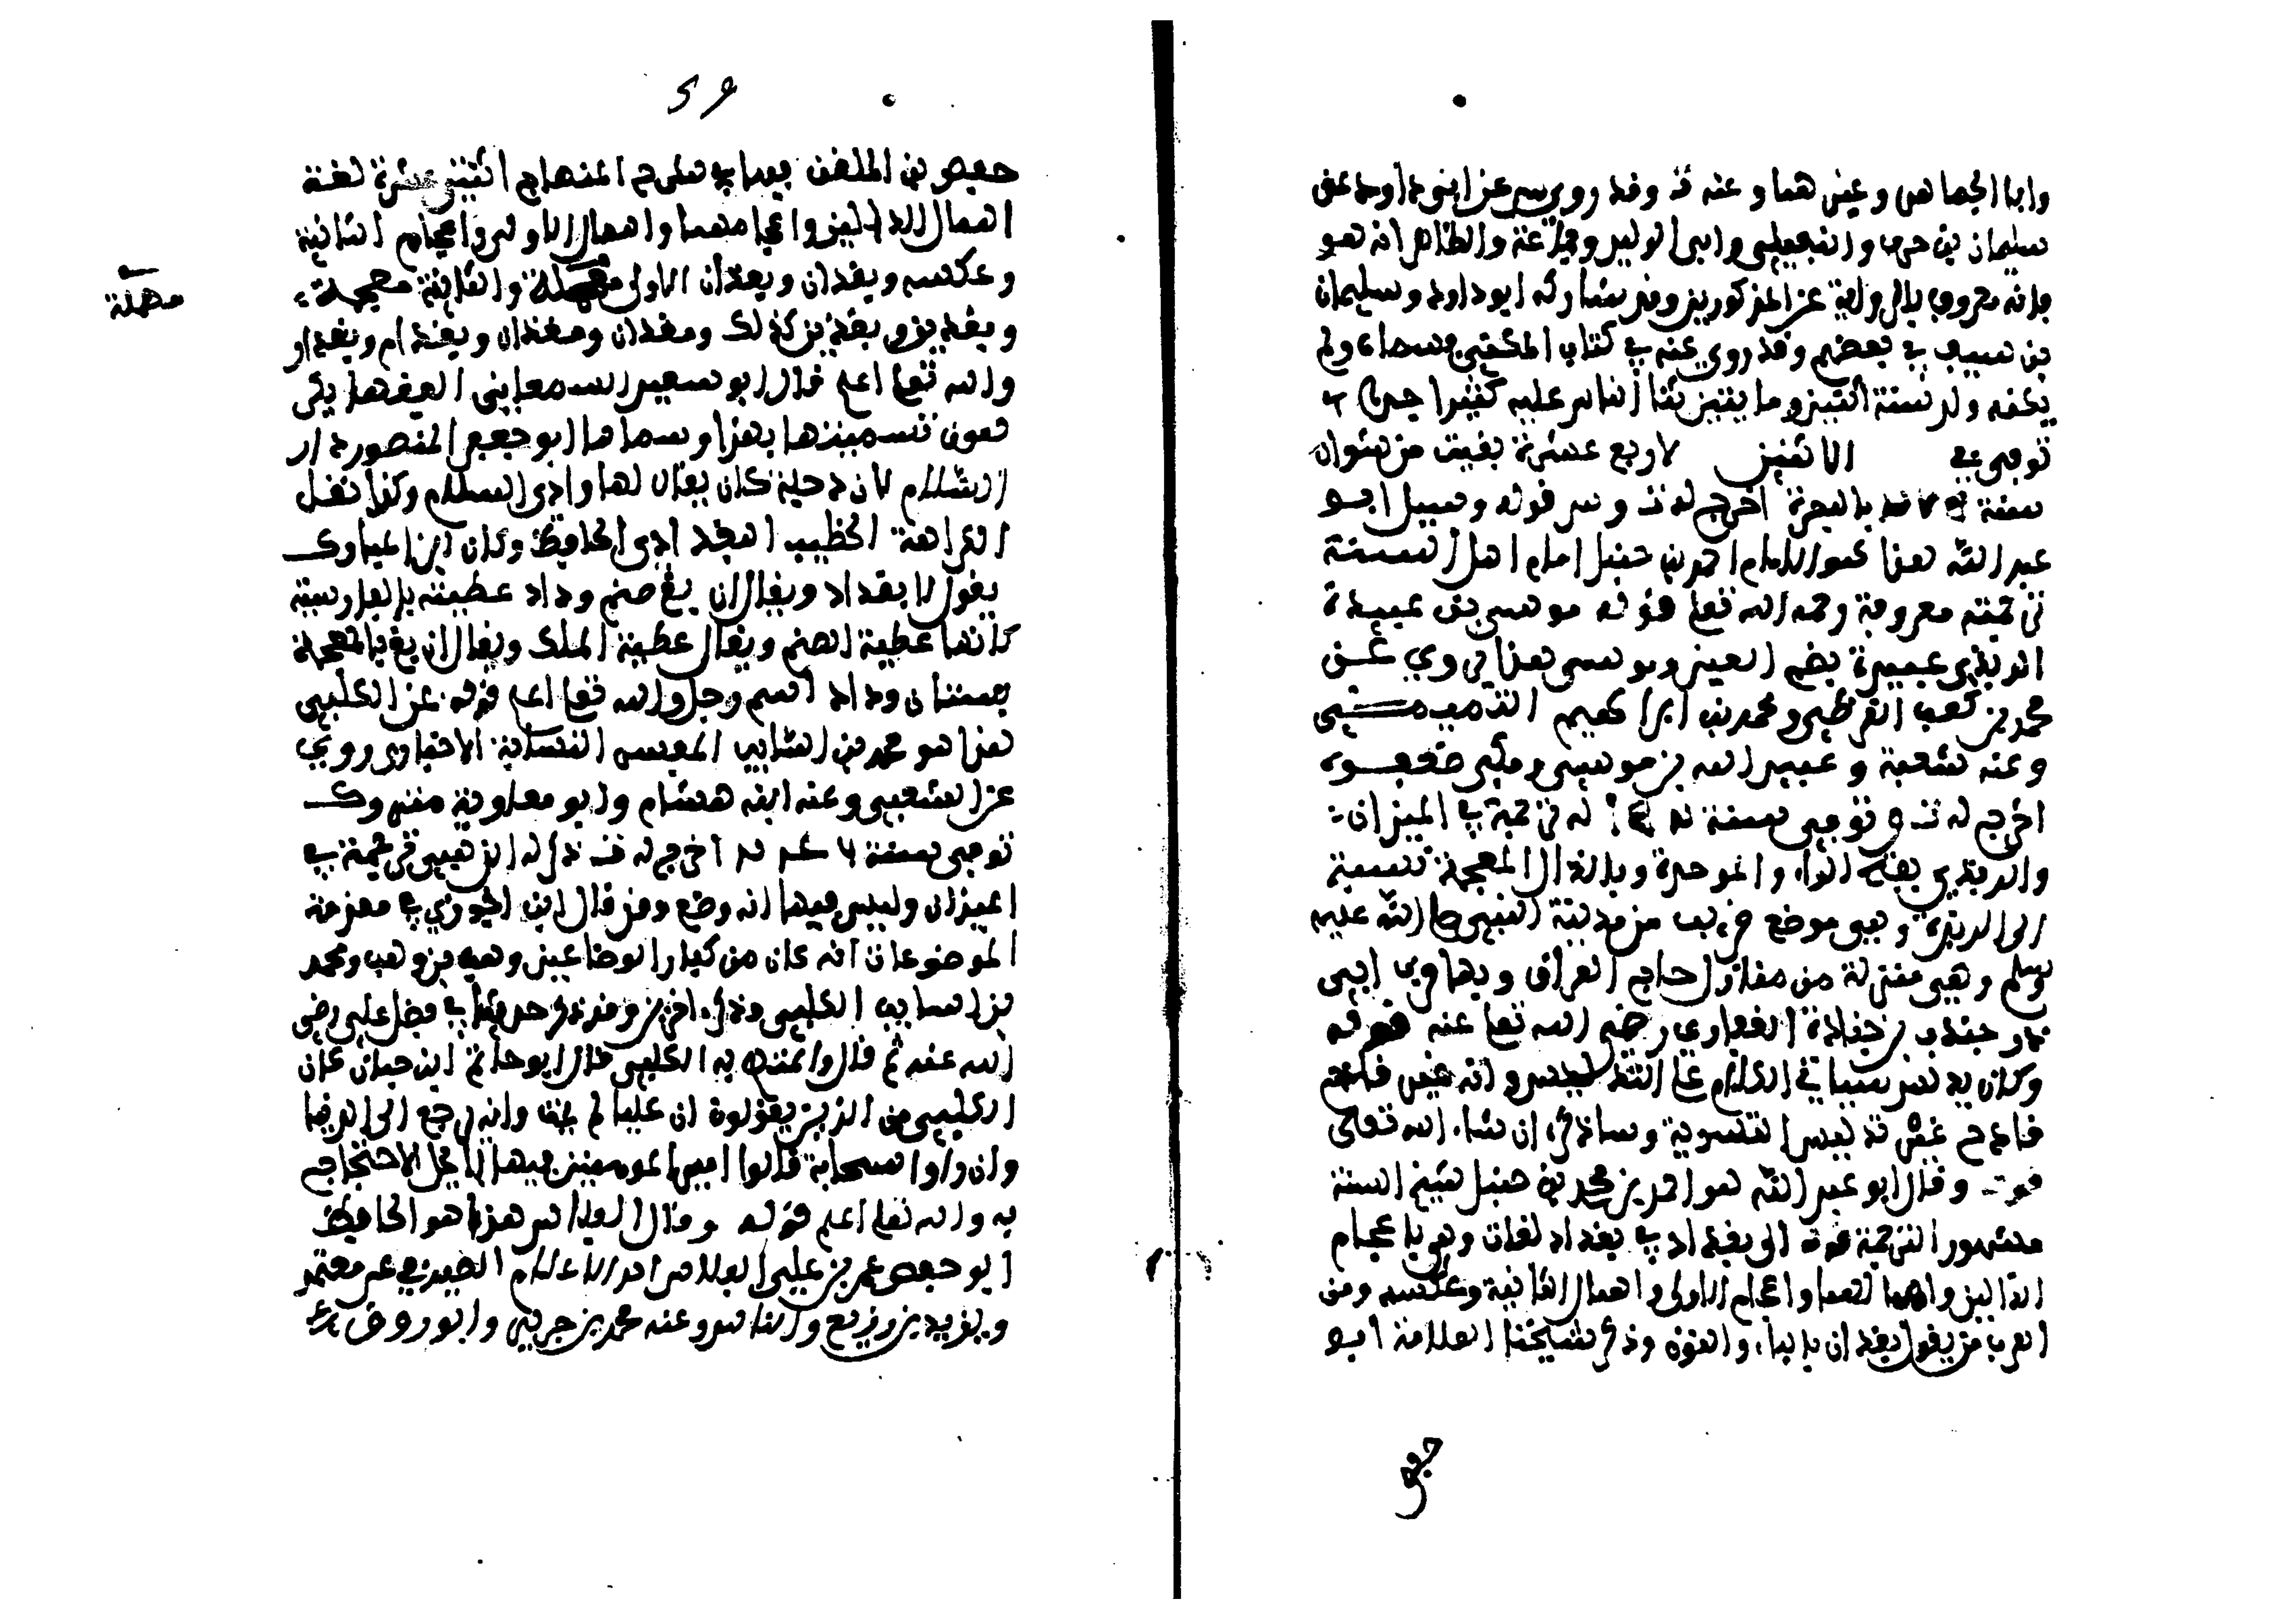 وابا الجماهر وغيرهما وعنه ن وقد روى س عن ابي داود عن
سليمان بن حرب والنفيلي وابي الوليد وجماعة والظاهر انه هو
فانه معروف بالرواية عن المذكورين وقد شاركه ابو داود سليمان
بن سيف في بعضهم وقد روى عنه في كتاب الكنى وسماه ولم
يكنه ولد سنة اثنتين وما يتين ثنا الناس عليه كثير جدا
توفي في الاثنين لاربع عشرة بقيت من شوال
سنة بالبصرة اخرج له ت و س قوله وسيل ابو
عبد الله هذا هو الامام احمد بن حنبل امام اهل السنة
ترجمته معروفة رحمه الله تعا قوله موسى بن عبيدة
الربذي عبيدة بضم العين وموسى هذا يروي عن
محمد بن كعب القرظي ومحمد بن ابراهيم التيمي
وعنه شعبة وعبيد الله بن موسى ومكي ضعفوه
اخرج له ت ق توفي سنة له ترجمة في الميزان
والربذي بفتح الراء والموحدة وبالذال المعجمة نسبة
الى الربذة وهي موضع قريب من مدينة النبي صلى الله عليه
وسلم وهي منزلة من منازل حاج العراق وبها قبر ابي
ذر جندب بن جنادة الغفاري رضي الله تعا عنه قوله
وكان يدلس سيا تي الكلام على التدليس وانه غير قادح
قادح غير تدليس التسوية وساذكره ان شاء الله تعالى
قوله وقال ابو عبد الله هو احمد بن محمد بن حنبل شيخ السنة
مشهور الترجمة قوله الى بغداد في بغداد لغات وهي باعجام
الدالين واهمالهما واعجام الاولى واهمال الثانية وعكسه ومن
العرب من يقول بغدان بالباء والنون وذكر شيخنا العلامة ابو
حفص
٥٩
حفص بن الملقن فيما في شرح المنهاج اثنتي عشرة لغة
اهمال الدالين واعجامهما واهمال الاولى واعجام الثانية
وعكسه وبغدان وبغذان الاولى مهملة والثانية معجمة
وبغدين وبغذين كذلك ومغدان ومغذان وبغدام وبغدار
والله تعا اعلم قال ابو سعيد السمعاني الفقها يكر
هون تسميتها بهذا وسماها ابو جعفر المنصور دار
السلام لان دجلة كان يقال لها وادي السلام وكذا نقل
الكراهة الخطيب البغدادي الحافظ وكان ابن المبارك
يقول لا بغداد ويقال ان بغ صنم وداد عطيته بالفارسية
كانها عطية الصنم ويقال عطية الملك ويقال ان بغ بالمعجمة
بستان وداد اسم رجل والله تعا اعلم قوله عن الكلبي
هذا هو محمد بن السايب المفسر النسابة الاخباري روى
عن الشعبي وعنه ابنه هشام وابو معاوية متروك
توفي سنة اخرج له ت ذكر له الذهبي ترجمة في
الميزان وليس فيها انه وضع وقد قال ابن الجوزي في مقدمة
الموضوعات انه كان من كبار الوضاعين وهب بن وهب ومحمد
بن السايب الكلبي وذكر اخرين وقد ذكر حديثا في فضل علي رضي
الله عنه ثم قال والمتهم به الكلبي قال ابو حاتم ابن حبان كان
الكلبي من الذين يقولون ان عليا لم يمت وانه يرجع الى الدنيا
وان راوا سحابة قالوا امير المومنين فيها لا يحل الاحتجاج
به والله تعا اعلم قوله وقال الفلاس هذا هو الحافظ
ابو حفص عمر بن علي الفلاس احد الاعلام الصيرفي عن معتمر
ويزيد بن زريع والناس وعنه محمد بن جرير وابو روق
مهملة